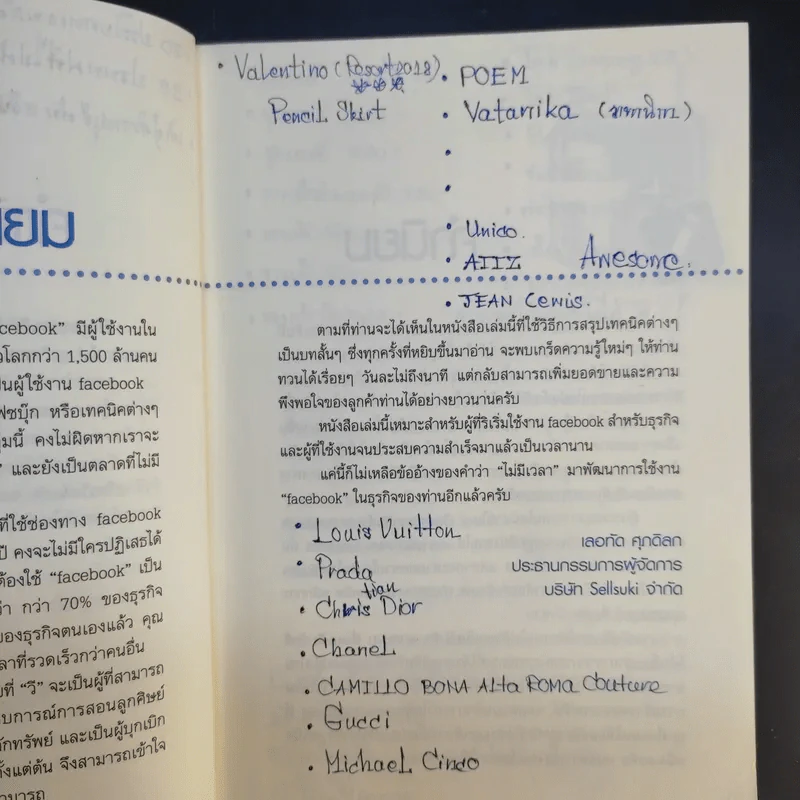 นิยม
facebook” มีผู้ใช้งานใน
โลกกว่า 1,500 ล้านคน
ป็นผู้ใช้งาน facebook
ฟซบุ๊ก หรือเทคนิคต่างๆ
คงไม่ผิดหากเราจะ
และยังเป็นตลาดที่ไม่มี
ที่ใช้ช่องทาง facebook
ปี คงจะไม่มีใครปฏิเสธได้
ต้องใช้ “facebook” เป็น
กว่า 70% ของธุรกิจ
ของธุรกิจตนเองแล้ว คุณ
ลาที่รวดเร็วกว่าคนอื่น
ที่ “วี” จะเป็นผู้ที่สามารถ
บการณ์การสอนลูกศิษย์
ักทรัพย์ และเป็นผู้บุกเบิก
ั้งแต่ต้น จึงสามารถเข้าใจ
มารถ
• Valentino (Resort 2018)
Pencil Skirt
• POEM
• Vatanika (วทานิกา)
•
•
• Unico.
• AIIZ Awesome.
• JEAN Cewis.
ตามที่ท่านจะได้เห็นในหนังสือเล่มนี้ที่ใช้วิธีการสรุปเทคนิคต่างๆ
เป็นบทสั้นๆ ซึ่งทุกครั้งที่หยิบขึ้นมาอ่าน จะพบเกร็ดความรู้ใหม่ๆ ให้ท่าน
ทวนได้เรื่อยๆ วันละไม่ถึงนาที แต่กลับสามารถเพิ่มยอดขายและความ
พึงพอใจของลูกค้าท่านได้อย่างยาวนานครับ
หนังสือเล่มนี้เหมาะสำหรับผู้ที่ริเริ่มใช้งาน facebook สำหรับธุรกิจ
และผู้ที่ใช้งานจนประสบความสำเร็จมาแล้วเป็นเวลานาน
แค่นี้ก็ไม่เหลือข้ออ้างของคำว่า “ไม่มีเวลา” มาพัฒนาการใช้งาน
“facebook” ในธุรกิจของท่านอีกแล้วครับ
เลอทัด ศุภดิลก
ประธานกรรมการผู้จัดการ
บริษัท Sellsuki จำกัด
• Louis Vuitton
• Prada
• Christian Dior
• Chanel
• CAMILLO BONA Alta ROMA Couture
• Gucci
• Michael Cinco